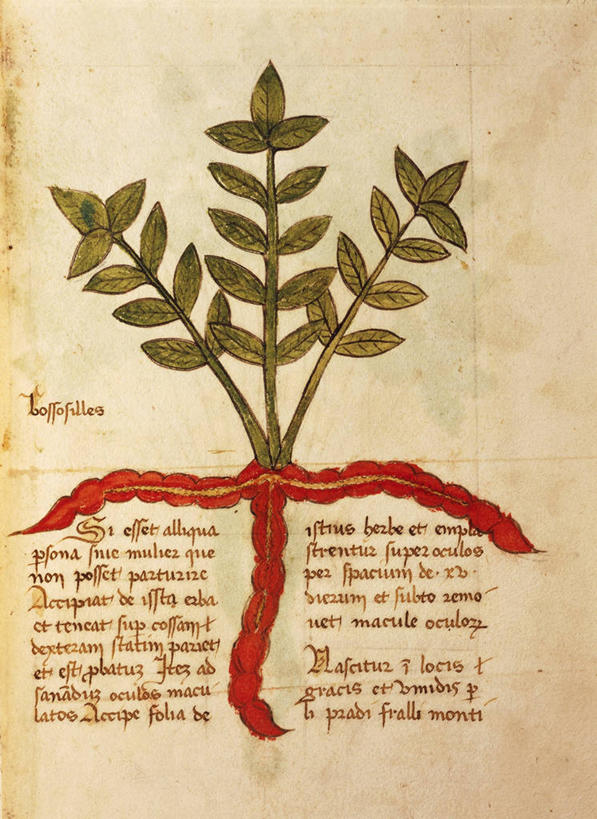 bossofilles
Si esset alliqua
psona siue mulier que
non posset parturire
Accipiat de issta erba
et teneat sup cossam ł
dexteram statim pariet
et est pbatuz Itez ad
sanãduz oculos macu
latos Accipe folia de
istius herbe et empla
strentur super oculos
per spacium de · xv ·
dierum et subto remo
uet macule oculoꝝ
Nascitur ĩ locis ł
gracis et vmidis p
li pradi fralli monti